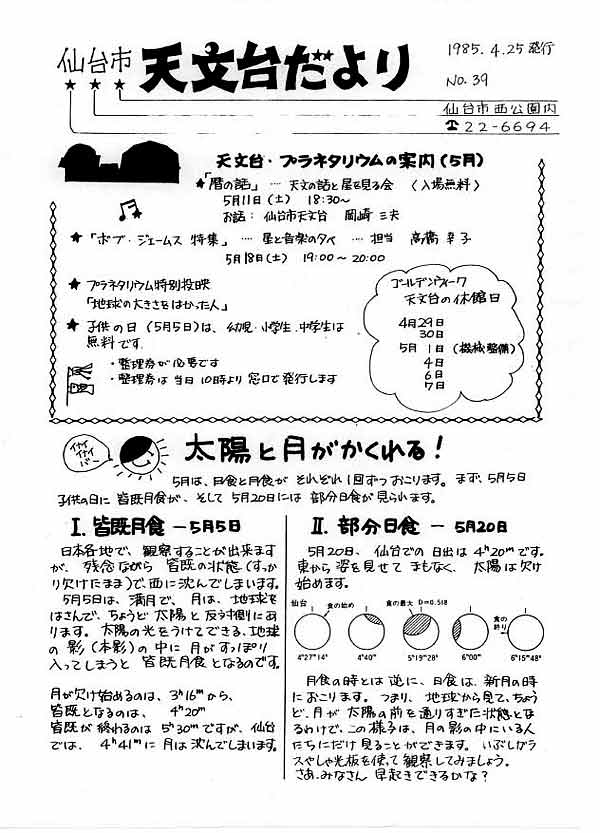 仙台市 天文台だより
1985.4.25 発行
No.39
仙台市西公園内
☎22-6694
天文台・プラネタリウムの案内(5月)
★「暦の話」… 天文の話と星を見る会 (入場無料)
5月11日(土) 18:30~
お話: 仙台市天文台 岡崎 三夫
★「ボブ・ジェームス 特集」…… 星と音楽の夕べ …… 担当 高橋 幸子
5月18日(土) 19:00~20:00
★ プラネタリウム特別投映
「地球の大きさをはかった人」
★ 子供の日(5月5日)は、幼児・小学生・中学生は
無料です.
・整理券が必要です
・整理券は当日10時より窓口で発行します
ゴールデンウィーク
天文台の休館日
4月29日
30日
5月 1日(機械整備)
4日
6日
7日
イナイ
イナイ
バー
太陽と月がかくれる!
5月は、日食と月食が それぞれ1回ずつおこります。まず、5月5日
子供の日に 皆既月食が、そして 5月20日には 部分日食が見られます。
I. 皆既月食 ー5月5日
日本各地で、観察することが出来ます
が、残念ながら 皆既の状態(すっか
り欠けたまま)で西に沈んでしまいます。
5月5日は、満月で、月は、地球を
はさんで、ちょうど太陽と反対側にあ
ります。太陽の光をうけてできる、地球
の影(本影)の中に月がすっぽり
入ってしまうと 皆既月食となるのです。
月が欠け始めるのは、3ʰ16ᵐから、
皆既となるのは、 4ʰ20ᵐ
皆既が終わるのは 5ʰ30ᵐですが、仙台
では、4ʰ41ᵐに月は沈んでしまいます。
II. 部分日食 ー 5月20日
5月20日、仙台での日出は4ʰ20ᵐです。
東から姿を見せて まもなく、太陽は欠け
始めます。
仙台 食の始め 食の最大 D=0.518 食の終り
4ʰ27ᵐ14ˢ 4ʰ40ᵐ 5ʰ19ᵐ28ˢ 6ʰ00ᵐ 6ʰ15ᵐ48ˢ
月食の時とは逆に、日食は、新月の時
におこります。つまり、地球から見て、ちょう
ど、月が太陽の前を通りすぎた状態とな
るわけで、この様子は、月の影の中にいる人
たちにだけ見ることができます。いぶしガラ
スやしゃ光板を使って観察してみましょう。
さあ、みなさん 早起きできるかな?